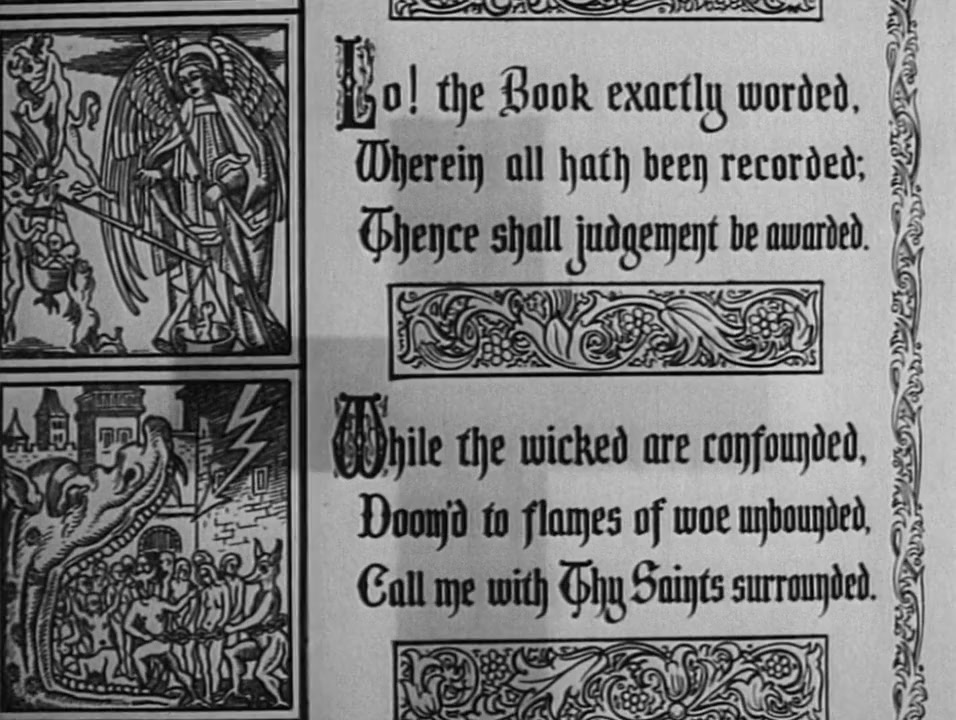 Lo! the Book exactly worded,
Wherein all hath been recorded;
Thence shall judgement be awarded.
While the wicked are confounded,
Doom'd to flames of woe unbounded,
Call me with Thy Saints surrounded.